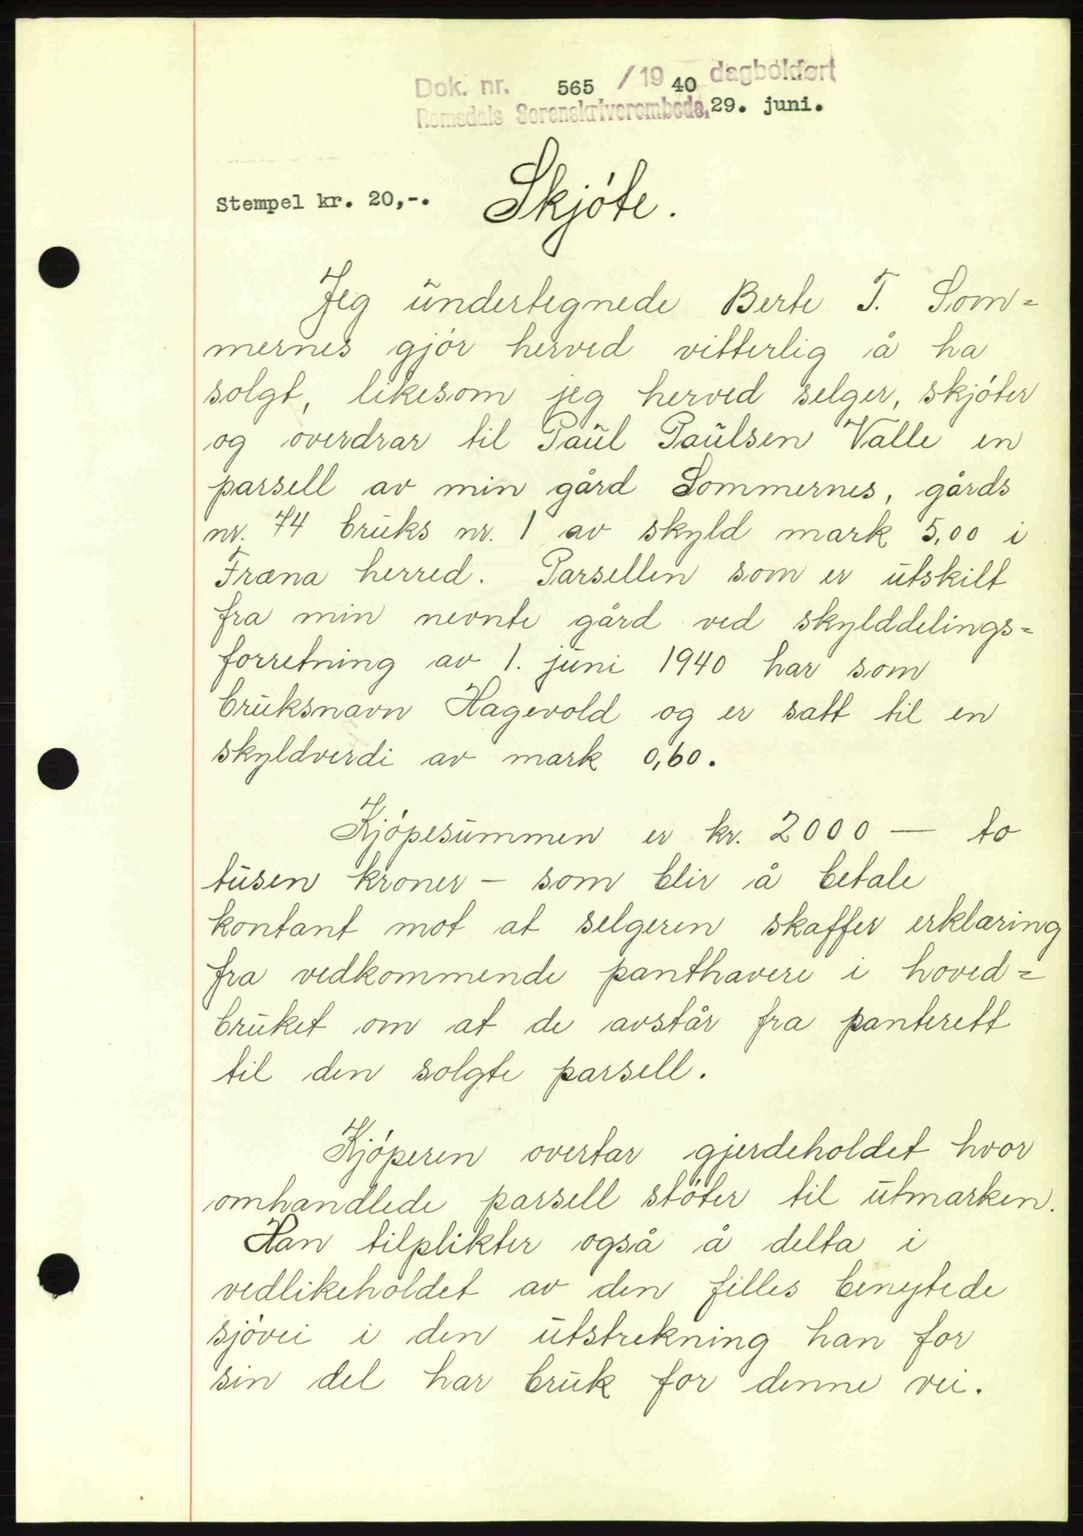 Dok. nr. 565 / 19 40 dagbokført
Romsdals Sorenskriverembede, 29. juni.
Stempel kr. 20,-. Skjóte.
Jeg undertegnede Berte T. Som=
mernes gjór herved vitterlig å ha
solgt, likesom jeg herved selger, skjóter
og overdrar til Paul Paulsen Valle en
parsell av min gård Sommernes, gårds
nr. 74 bruks nr. 1 av skyld mark 5,00 i
Fræna herred. Parsellen som er utskilt
fra min nevnte gård ved skylddelings=
forretning av 1. juni 1940 har som
bruksnavn Hagevold og er satt til en
skyldverdi av mark 0,60.
Kjópesummen er kr. 2000 — to
tusen kroner – som blir å betale
kontant mot at selgeren skaffer erklæring
fra vedkommende panthavere i hoved=
bruket om at de avstår fra panterett
til den solgte parsell.
Kjóperen overtar gjerdeholdet hvor
omhandlede parsell stóter til utmarken.
Han tilplikter også å delta i
vedlikeholdet av den felles benytede
sjóvei i den utstrekning han for
sin del har bruk for denne vei.